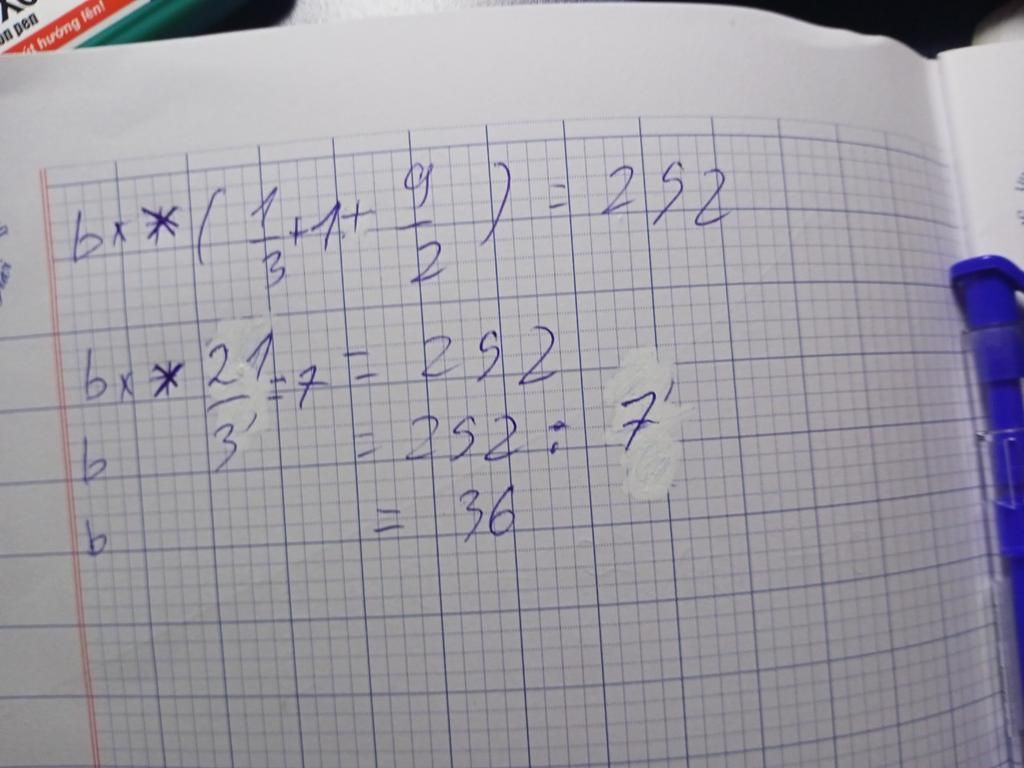 on pen
út hướng lên!
b × * ( 1/3 + 1 + 9/2 ) = 252
b × * 21/3 = 7 = 252
b = 252 : 7
b = 36